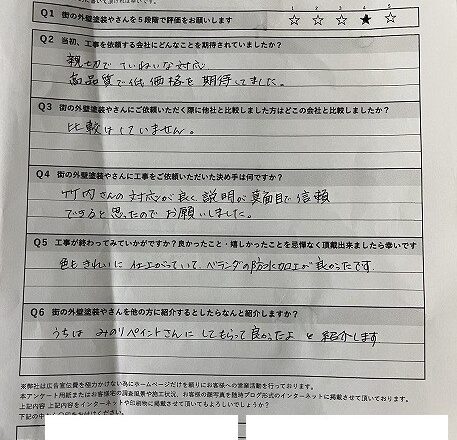 Q1 街の外壁塗装やさんを5段階で評価をお願いします
1 2 3 4 5
☆ ☆ ☆ ★ ☆
Q2 当初、工事を依頼する会社にどんなことを期待されていましたか?
親切でていねいな対応
高品質で低価格を期待してました。
Q3 街の外壁塗装やさんにご依頼いただく際に他社と比較しました方はどこの会社と比較しましたか?
比較はしていません。
Q4 街の外壁塗装やさんに工事をご依頼いただいた決め手は何ですか?
竹内さんの対応が良く説明が真面目で信頼
できると思ったのでお願いしました。
Q5 工事が終わってみていかがですか?良かったこと・嬉しかったことを忌憚なく頂戴出来ましたら幸いです
色もきれいに仕上がっていて、ベランダの防水加工が良かったです
Q6 街の外壁塗装やさんを他の方に紹介するとしたらなんと紹介しますか?
うちはみのりペイントさんにしてもらって良かったよと紹介します
※弊社は広告宣伝費を極力かけない為にホームページだけを頼りにお客様への営業活動を行っております。
本アンケート用紙またはお客様宅の調査風景や施工状況、お客様の顔写真を随時ブログ形式のインターネットに掲載させて頂いております。
上記内容 上記内容をインターネットや印刷物に掲載させて頂いてもよろしいでしょうか?